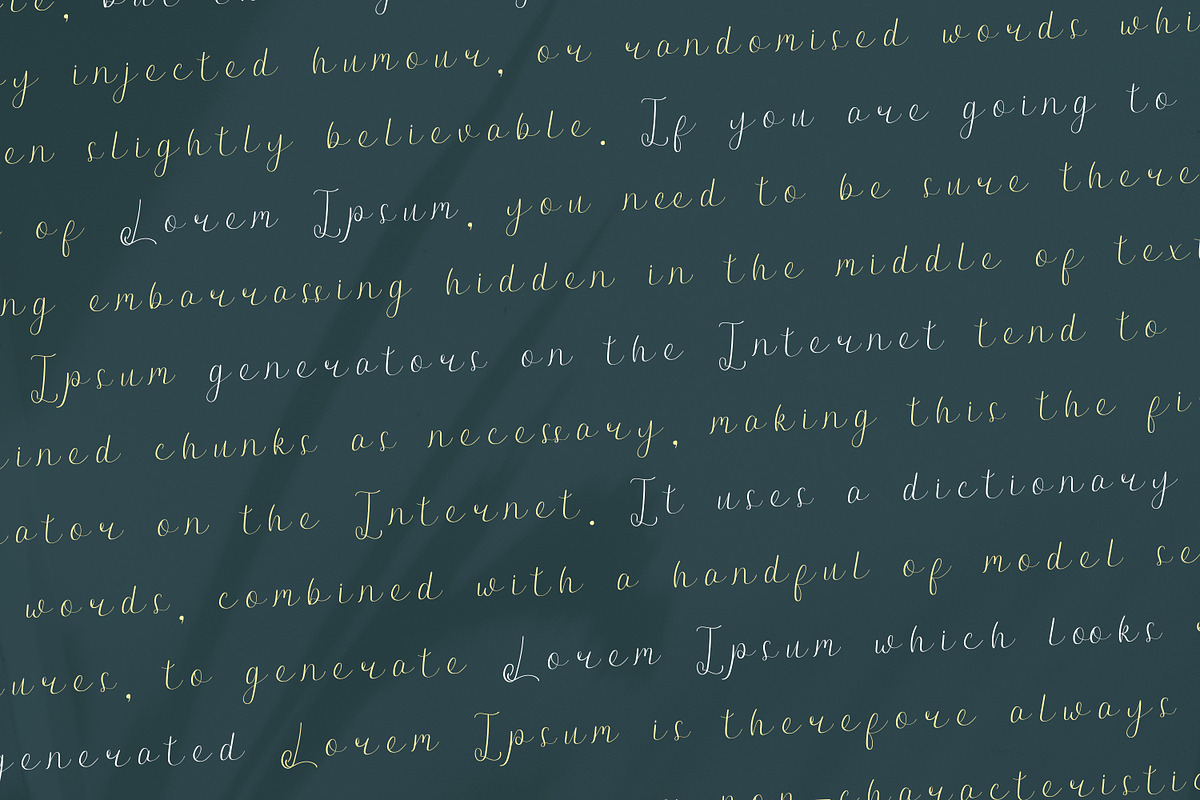 by injected humour, or randomised words whi
en slightly believable. If you are going to
of Lorem Ipsum, you need to be sure there
ng embarrassing hidden in the middle of text
Ipsum generators on the Internet tend to
ined chunks as necessary, making this the fi
ator on the Internet. It uses a dictionary
words, combined with a handful of model se
ures, to generate Lorem Ipsum which looks
generated Lorem Ipsum is therefore always
non characteristic